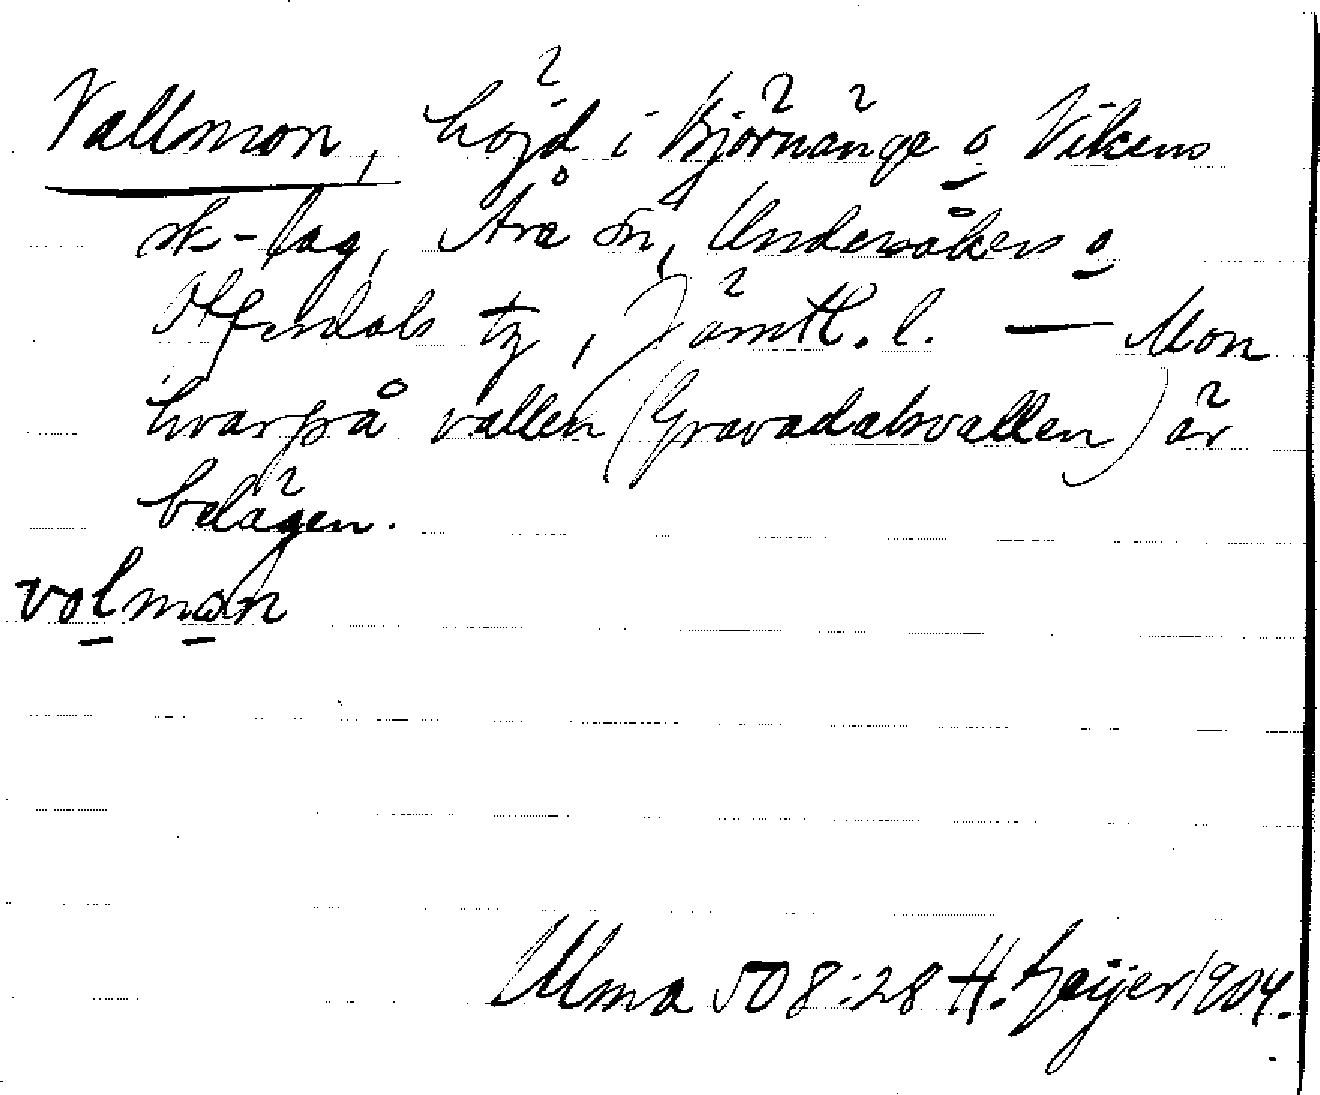 Vallmon, höjd i Björnänge o Vikens
sk-lag, Åre sn, Undersåkers o
Offerdals tg, Jämtl. l. — Mon
hvarpå vallen (Gravadalsvallen) är
belägen.
volmon
Ulma 508:28 H. Geijer 1904.